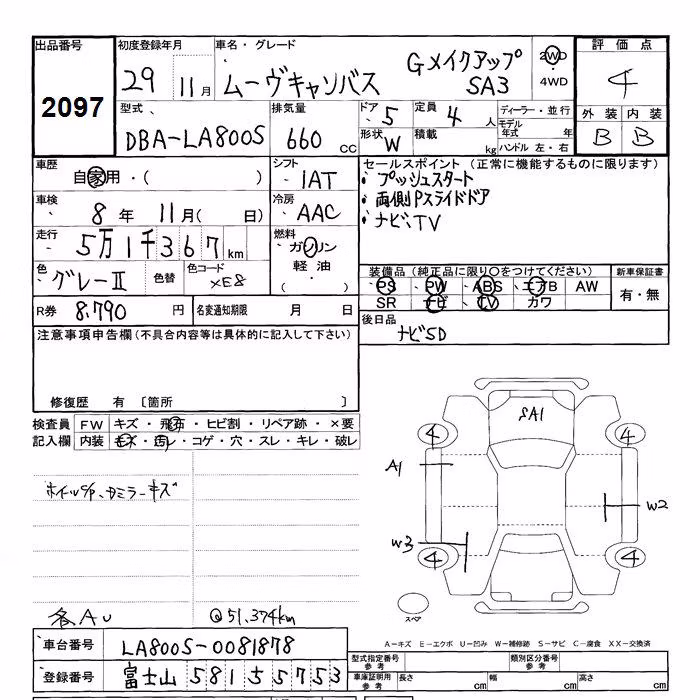 出品番号 初度登録年月 車名・グレード 評価点
2097
29 11月 ムーヴキャンバス Gメイクアップ SA3 2WD ・ 4WD 4
型式 排気量 ドア 5 定員 4人 ディーラー・並行 外装 内装
DBA-LA800S 660 CC 形状 W 積載 kg モデル年式 年 ハンドル 左・右 B B
車歴 自家用・( ) シフト IAT セールスポイント (正常に機能するものに限ります)
・プッシュスタート
車検 8年 11月( 日) 冷房 AAC ・両側Pスライドドア
・ナビ、TV
走行 5万1千367km 燃料 ガソリン・軽油・( )
色 グレーII 色替 色コード XE8 装備品 (純正品に限り○をつけてください) 新車保証書
PS PW ABS エアB AW 有・無
SR ナビ TV カワ
R券 8,790円 名変通知期限 月 日 後日品
ナビSD
注意事項申告欄(不具合内容等は具体的に記入して下さい)
修復歴 有 〔箇所 〕
検査員 FW キズ・飛石・ヒビ割・リペア跡・×要
記入欄 内装 キズ・汚レ・コゲ・穴・スレ・キレ・破レ
SA1
4 4
A1
ホイールC/P、カミラーキズ
W2
W3
4 4
スペア
各AU @51,374km
A−キズ E−エクボ U−凹み W−補修跡 S−サビ C−腐食 XX−交換済
車台番号 LA800S-0081878 型式指定番号 参考 類別区分番号 参考
登録番号 富士山 581 55753 車庫証明用 参考 長さ cm 幅 cm 高さ cm